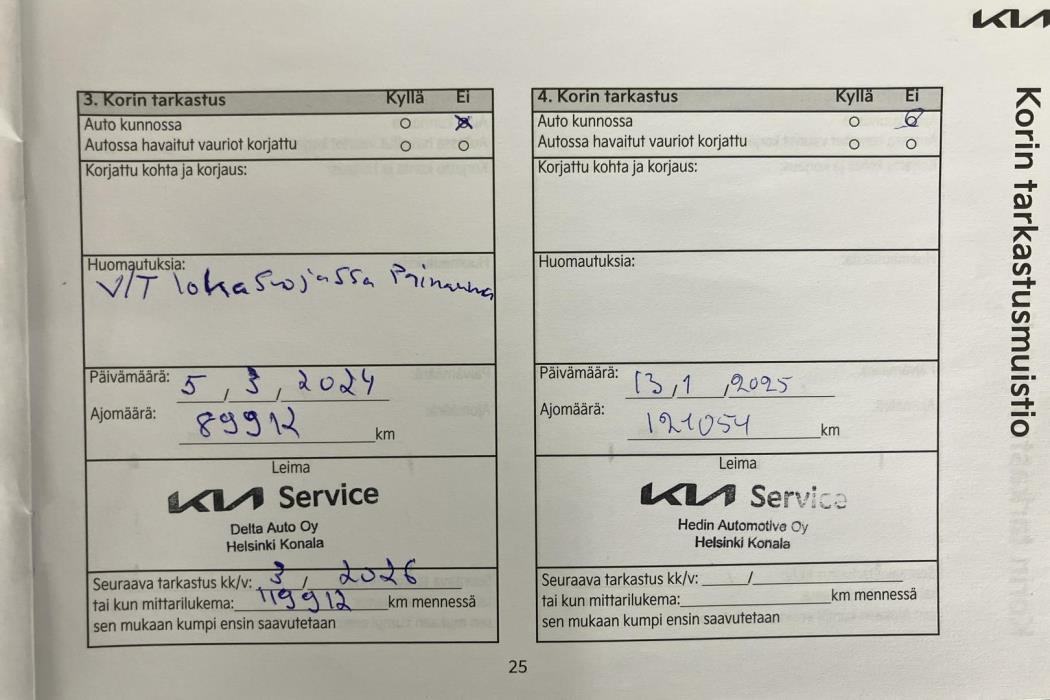 KIA
Korin tarkastusmuistio
3. Korin tarkastus Kyllä Ei
Auto kunnossa
Autossa havaitut vauriot korjattu
Korjattu kohta ja korjaus:
Huomautuksia:
V/T lokasuojassa
Päivämäärä: 5 , 3 , 2024
Ajomäärä: 89912 km
Leima
KIA Service
Delta Auto Oy
Helsinki Konala
Seuraava tarkastus kk/v: 3 / 2026
tai kun mittarilukema: 119912 km mennessä
sen mukaan kumpi ensin saavutetaan
4. Korin tarkastus Kyllä Ei
Auto kunnossa
Autossa havaitut vauriot korjattu
Korjattu kohta ja korjaus:
Huomautuksia:
Päivämäärä: 13 , 1 , 2025
Ajomäärä: 121054 km
Leima
KIA Service
Hedin Automotive Oy
Helsinki Konala
Seuraava tarkastus kk/v: /
tai kun mittarilukema: km mennessä
sen mukaan kumpi ensin saavutetaan
25